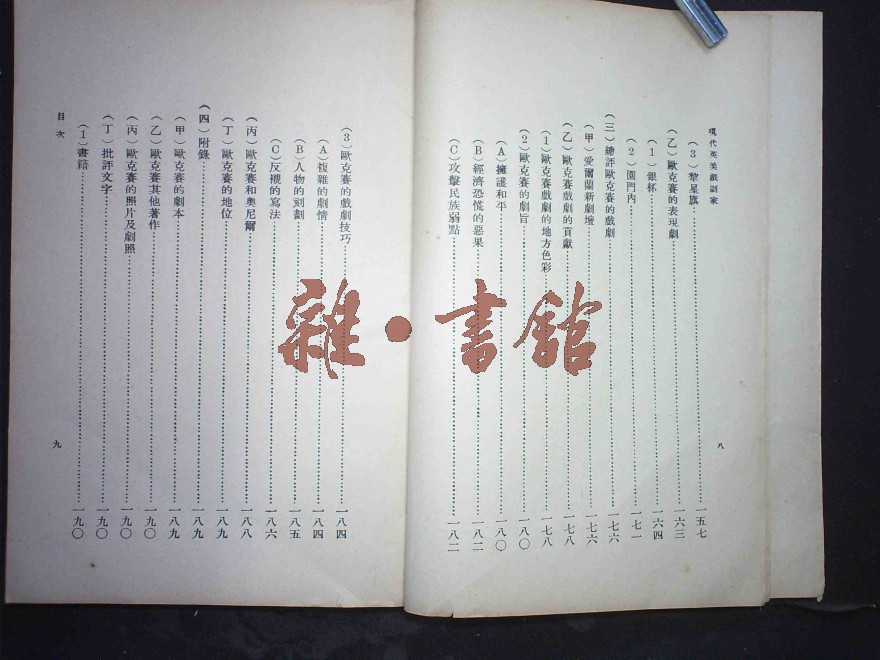 現代英美戲劇家
(3)犂星旗……一五七
(乙)歐克賽的表現劇……一六三
(1)銀杯……一六四
(2)園門內……一七一
(三)總評歐克賽的戲劇……一七六
(甲)愛爾蘭新劇壇……一七六
(乙)歐克賽戲劇的貢獻……一七八
(1)歐克賽戲劇的地方色彩……一七八
(2)歐克賽的劇旨……一八〇
(A)擁護和平……一八〇
(B)經濟恐慌的惡果……一八二
(C)攻擊民族弱點……一八二
八
(3)歐克賽的戲劇技巧……一八四
(A)複雜的劇情……一八四
(B)人物的刻劃……一八五
(C)反襯的寫法……一八六
(丙)歐克賽和奧尼爾……一八八
(丁)歐克賽的地位……一八九
(四)附錄……一八九
(甲)歐克賽的劇本……一八九
(乙)歐克賽其他著作……一九〇
(丙)歐克賽的照片及劇照……一九〇
(丁)批評文字……一九〇
(1)書籍……一九〇
目次
九
雜·書館